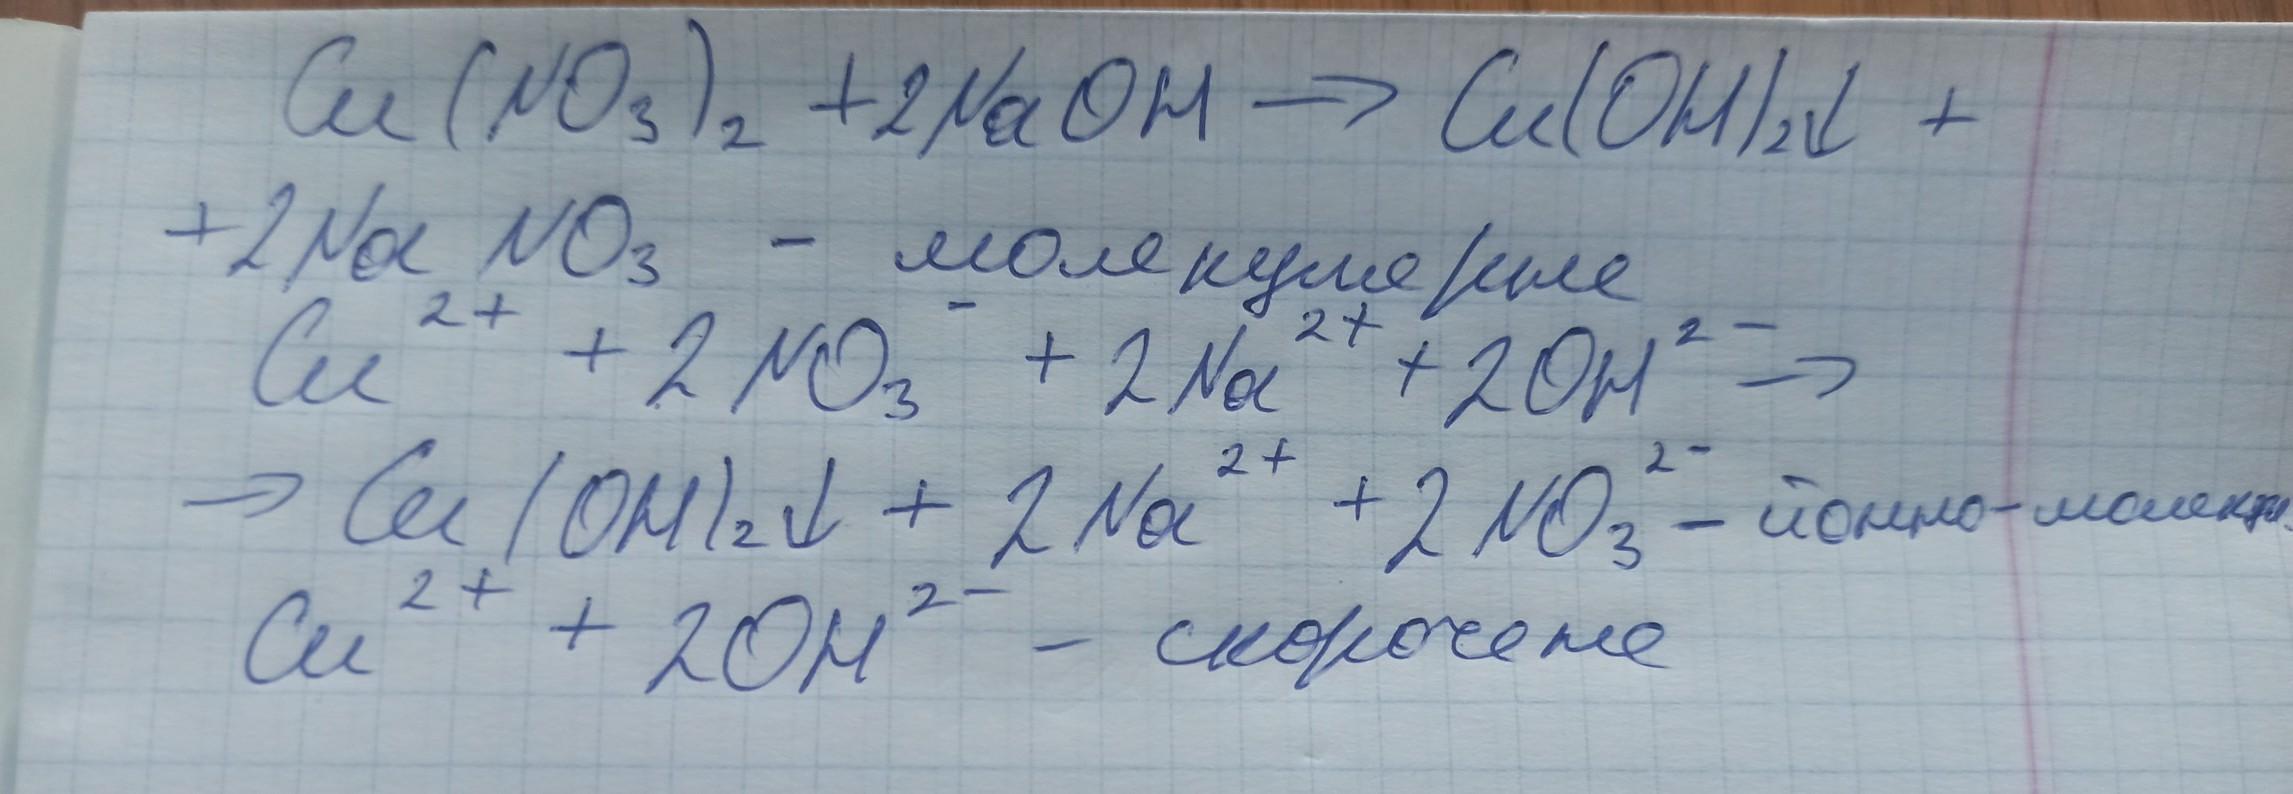 Cu(NO₃)₂ + 2NaOH → Cu(OH)₂↓ +
+ 2NaNO₃ - молекулярне
Cu²⁺ + 2NO₃⁻ + 2Na²⁺ + 2OH²⁻ →
→ Cu(OH)₂↓ + 2Na²⁺ + 2NO₃²⁻ - йонно-молекул
Cu²⁺ + 2OH²⁻ - скорочене